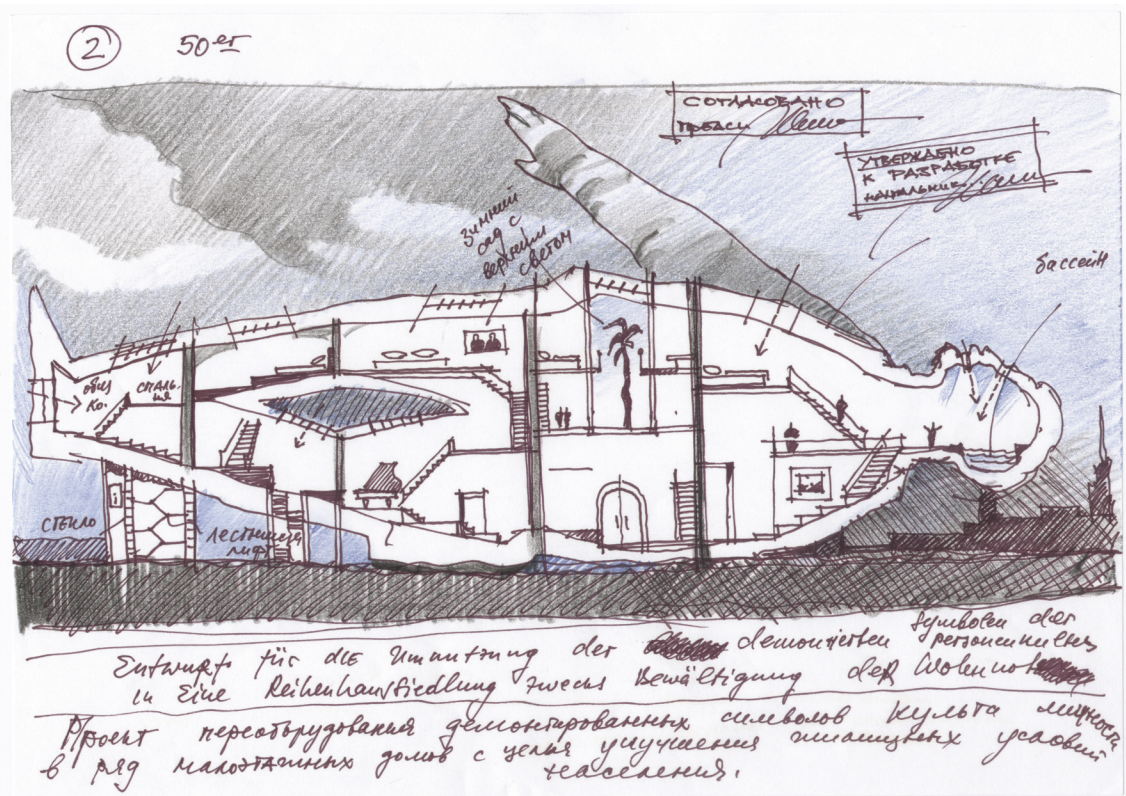 2 50er
СОГЛАСОВАНО
УТВЕРЖДЕНО
К РАЗРАБОТКЕ
НАЧАЛЬНИК
ЗИМНИЙ
САД С
ВЕРХНИМ
СВЕТОМ
бассейн
СПАЛЬ-
НЯ
СТЕКЛО
ЛЕСТНИЦА
ЛИФТ
Entwurf für die Umnutzung der demontierten Symbolen der Personenkultes
in Eine Reihenhaussiedlung zwecks Bewältigung der Wohnnot
Проект переоборудования демонтированных символов культа личности
в ряд малоэтажных домов с целья улучшения жилищных условий
населения.